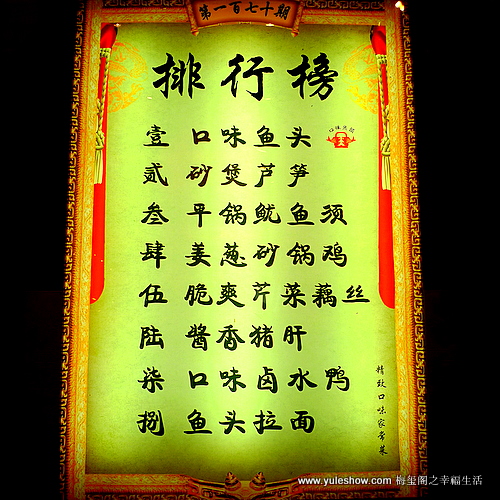 第一百七十期
排行榜
壹 口味鱼头
贰 砂煲芦笋
叁 平锅鱿鱼须
肆 姜葱砂锅鸡
伍 脆爽芹菜藕丝
陆 酱香猪肝
柒 口味卤水鸭
捌 鱼头拉面
精致口味家常菜
www.yuleshow.com 梅玺阁之幸福生活